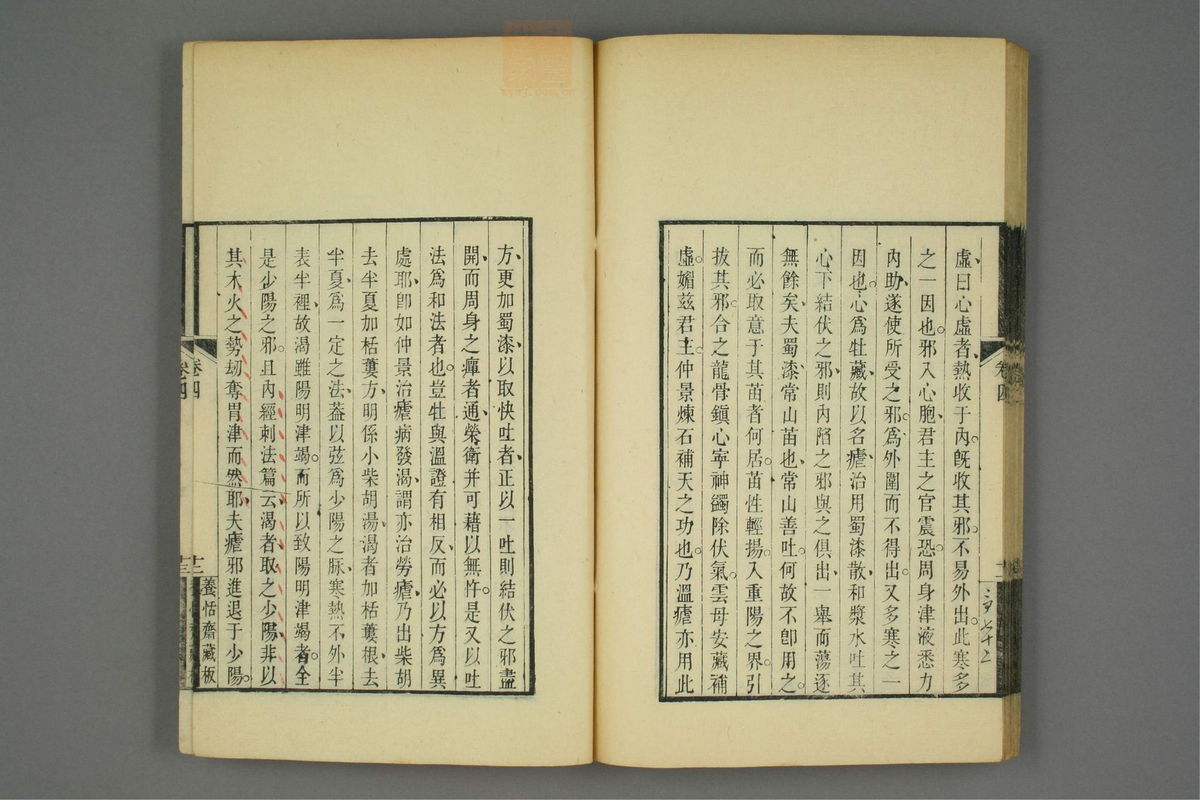 虛曰心虛者、熱收于內。旣收其邪。不易外出。此寒多
之一因也。邪入心胞、君主之官震恐。周身津液悉力
內助、遂使所受之邪。爲外圍而不得出。又多寒之一
因也。心爲牡藏、故以名瘧、治用蜀漆散、和漿水吐其
心下結伏之邪、則內陷之邪與之俱出、一舉而蕩逐
無餘矣、夫蜀漆、常山苗也、常山善吐。何故不卽用之。
而必取意于其苗者何居。苗性輕揚。入重陽之界。引
拔其邪。合之龍骨鎭心寧神蠲除伏氣。雲母安藏補
虛。媚茲君主。仲景煉石補天之功也。乃溫瘧亦用此
卷四
方、更加蜀漆、以取快吐者、正以一吐則結伏之邪盡
開、而周身之痺者通、榮衛并可藉以無忤。是又以吐
法爲和法者也。豈牡與溫證有相反、而必以方爲異
處耶、卽如仲景治瘧病發渴、謂亦治勞瘧、乃出柴胡
去半夏加栝蔞方、明係小柴胡湯、渴者加栝蔞根、去
半夏、爲一定之法、蓋以弦爲少陽之脉、寒熱不外半
表半裡、故渴雖陽明津竭。而所以致陽明津竭者。全
是少陽之邪。且內經刺法篇云、渴者、取之少陽、非以
其木火之勢刼奪胃津而然耶、夫瘧邪進退于少陽。
卷四
十二
養恬齋藏板
卷四
十三